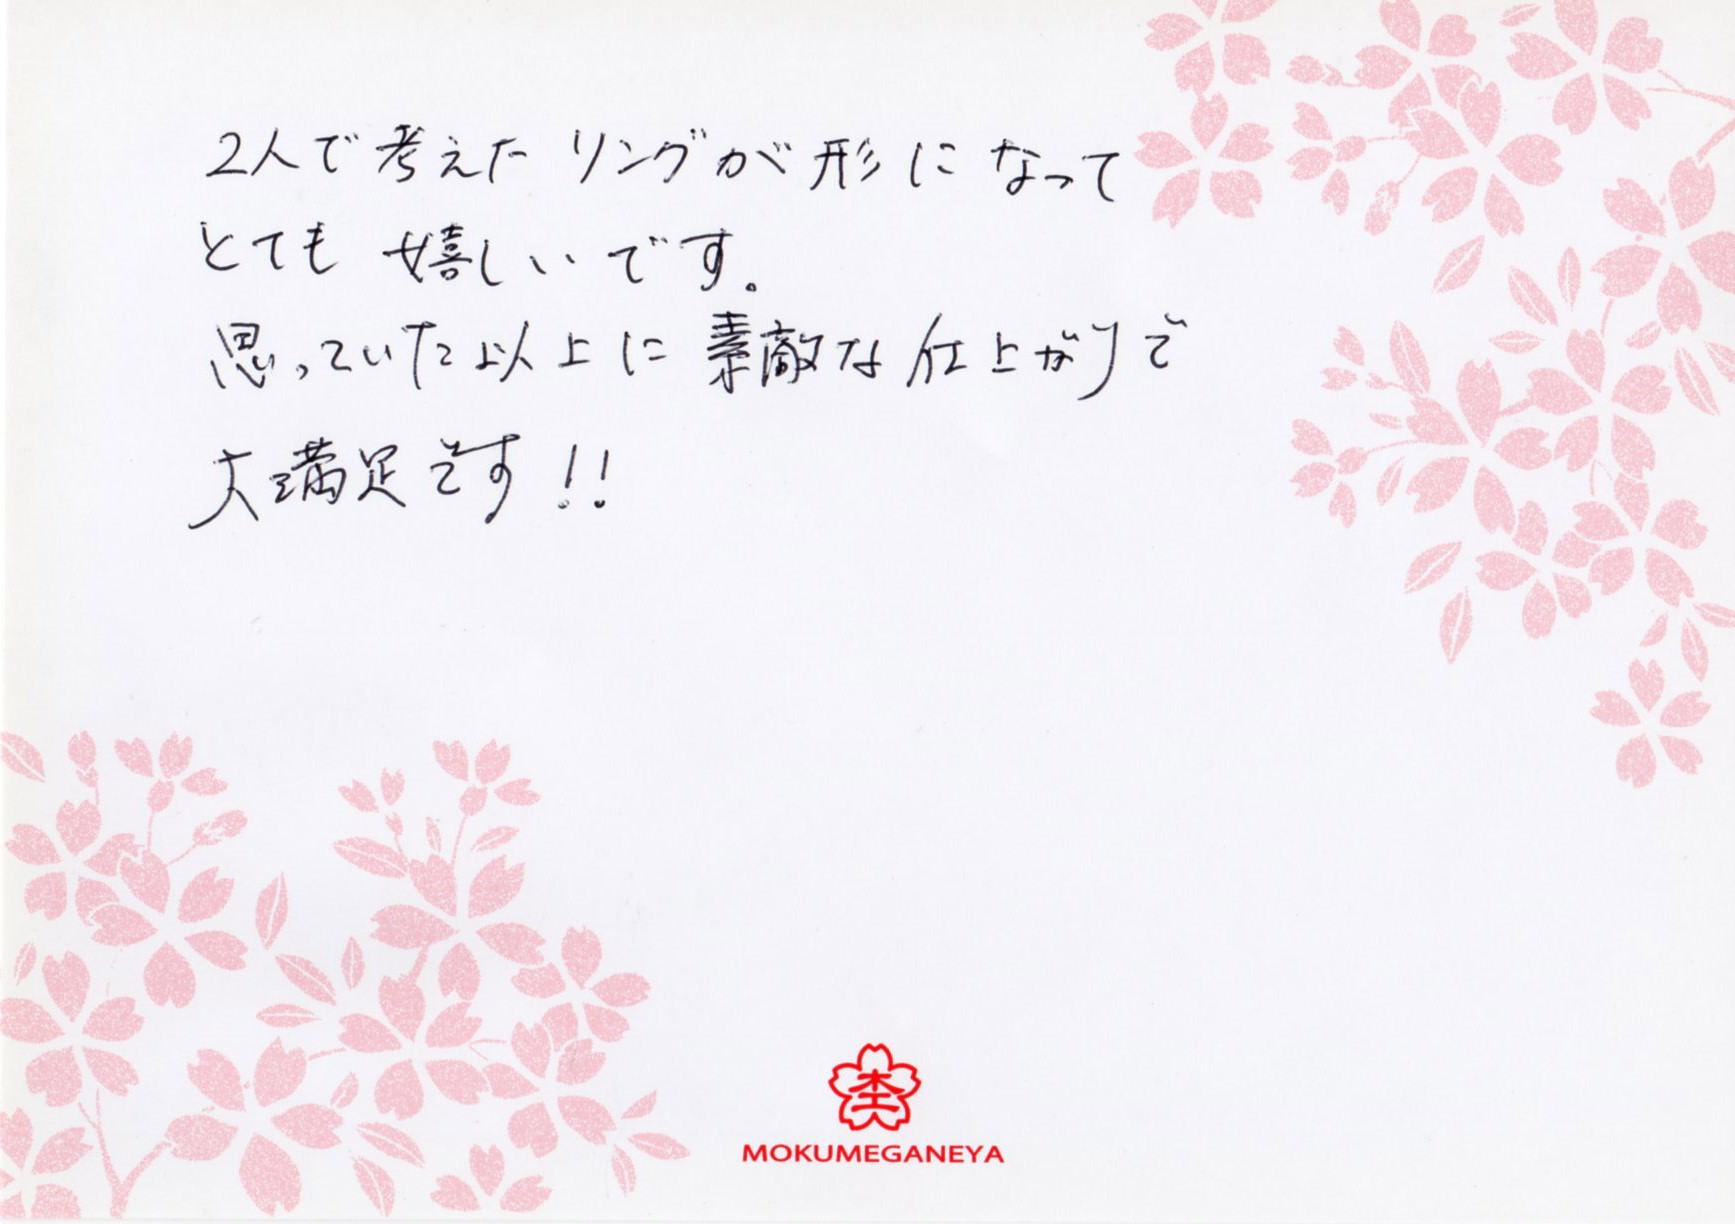 2人で考えたリングが形になって
とても嬉しいです。
思っていた以上に素敵な仕上がりで
大満足です!!
杢
MOKUMEGANEYA